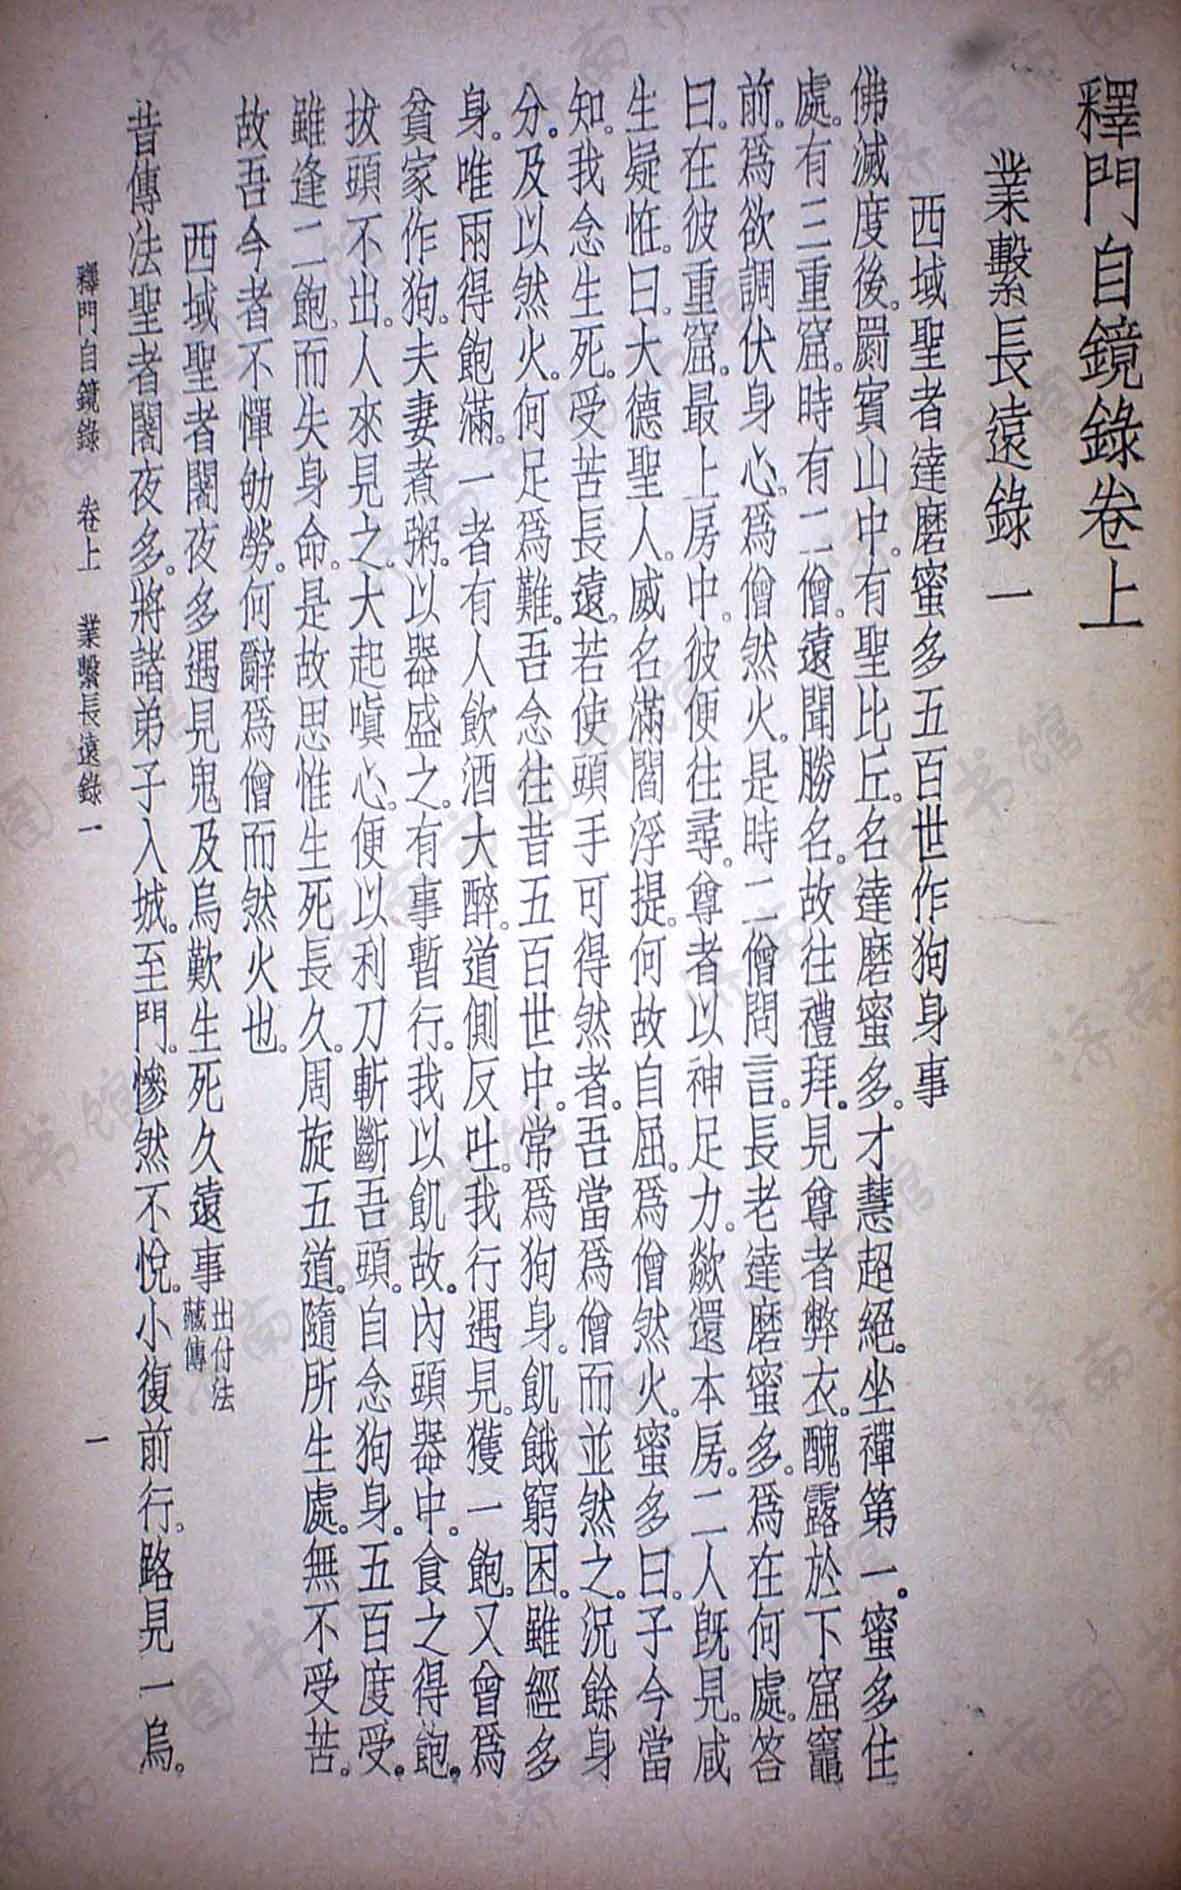 釋門自鏡錄卷上
業繫長遠錄一
西域聖者達磨蜜多五百世作狗身事
佛滅度後。罽賓山中。有聖比丘。名達磨蜜多。才慧超絕。坐禪第一。蜜多住
處。有三重窟。時有二僧。遠聞勝名。故往禮拜。見尊者弊衣。醜露於下窟竈
前。為欲調伏身心。為僧然火。是時二僧問言。長老達磨蜜多。為在何處。答
曰。在彼重窟。最上房中。彼便往尋。尊者以神足力。歘還本房。二人既見。咸
生疑恠。曰。大德聖人。威名滿閻浮提。何故自屈。為僧然火。蜜多曰。子今當
知。我念生死。受苦長遠。若使頭手可得然者。吾當為僧而並然之。況餘身
分。及以然火。何足為難。吾念往昔五百世中。常為狗身。飢餓窮困。雖經多
身。唯兩得飽滿。一者有人飲酒大醉。道側反吐。我行遇見。獲一飽。又曾為
貧家作狗。夫妻煮粥。以器盛之。有事暫行。我以飢故。內頭器中。食之得飽。
拔頭不出。人來見之。大起嗔心。便以利刀斬斷吾頭。自念狗身。五百度受。
雖逢二飽。而失身命。是故思惟生死長久。周旋五道。隨所生處。無不受苦。
故吾今者不憚劬勞。何辭為僧而然火也。
西域聖者闍夜多遇見鬼及烏歎生死久遠事 出付法藏傳
昔傳法聖者闍夜多。將諸弟子入城。至門。慘然不悅。小復前行。路見一烏。
釋門自鏡錄 卷上 業繫長遠錄一 一
济南市图书馆